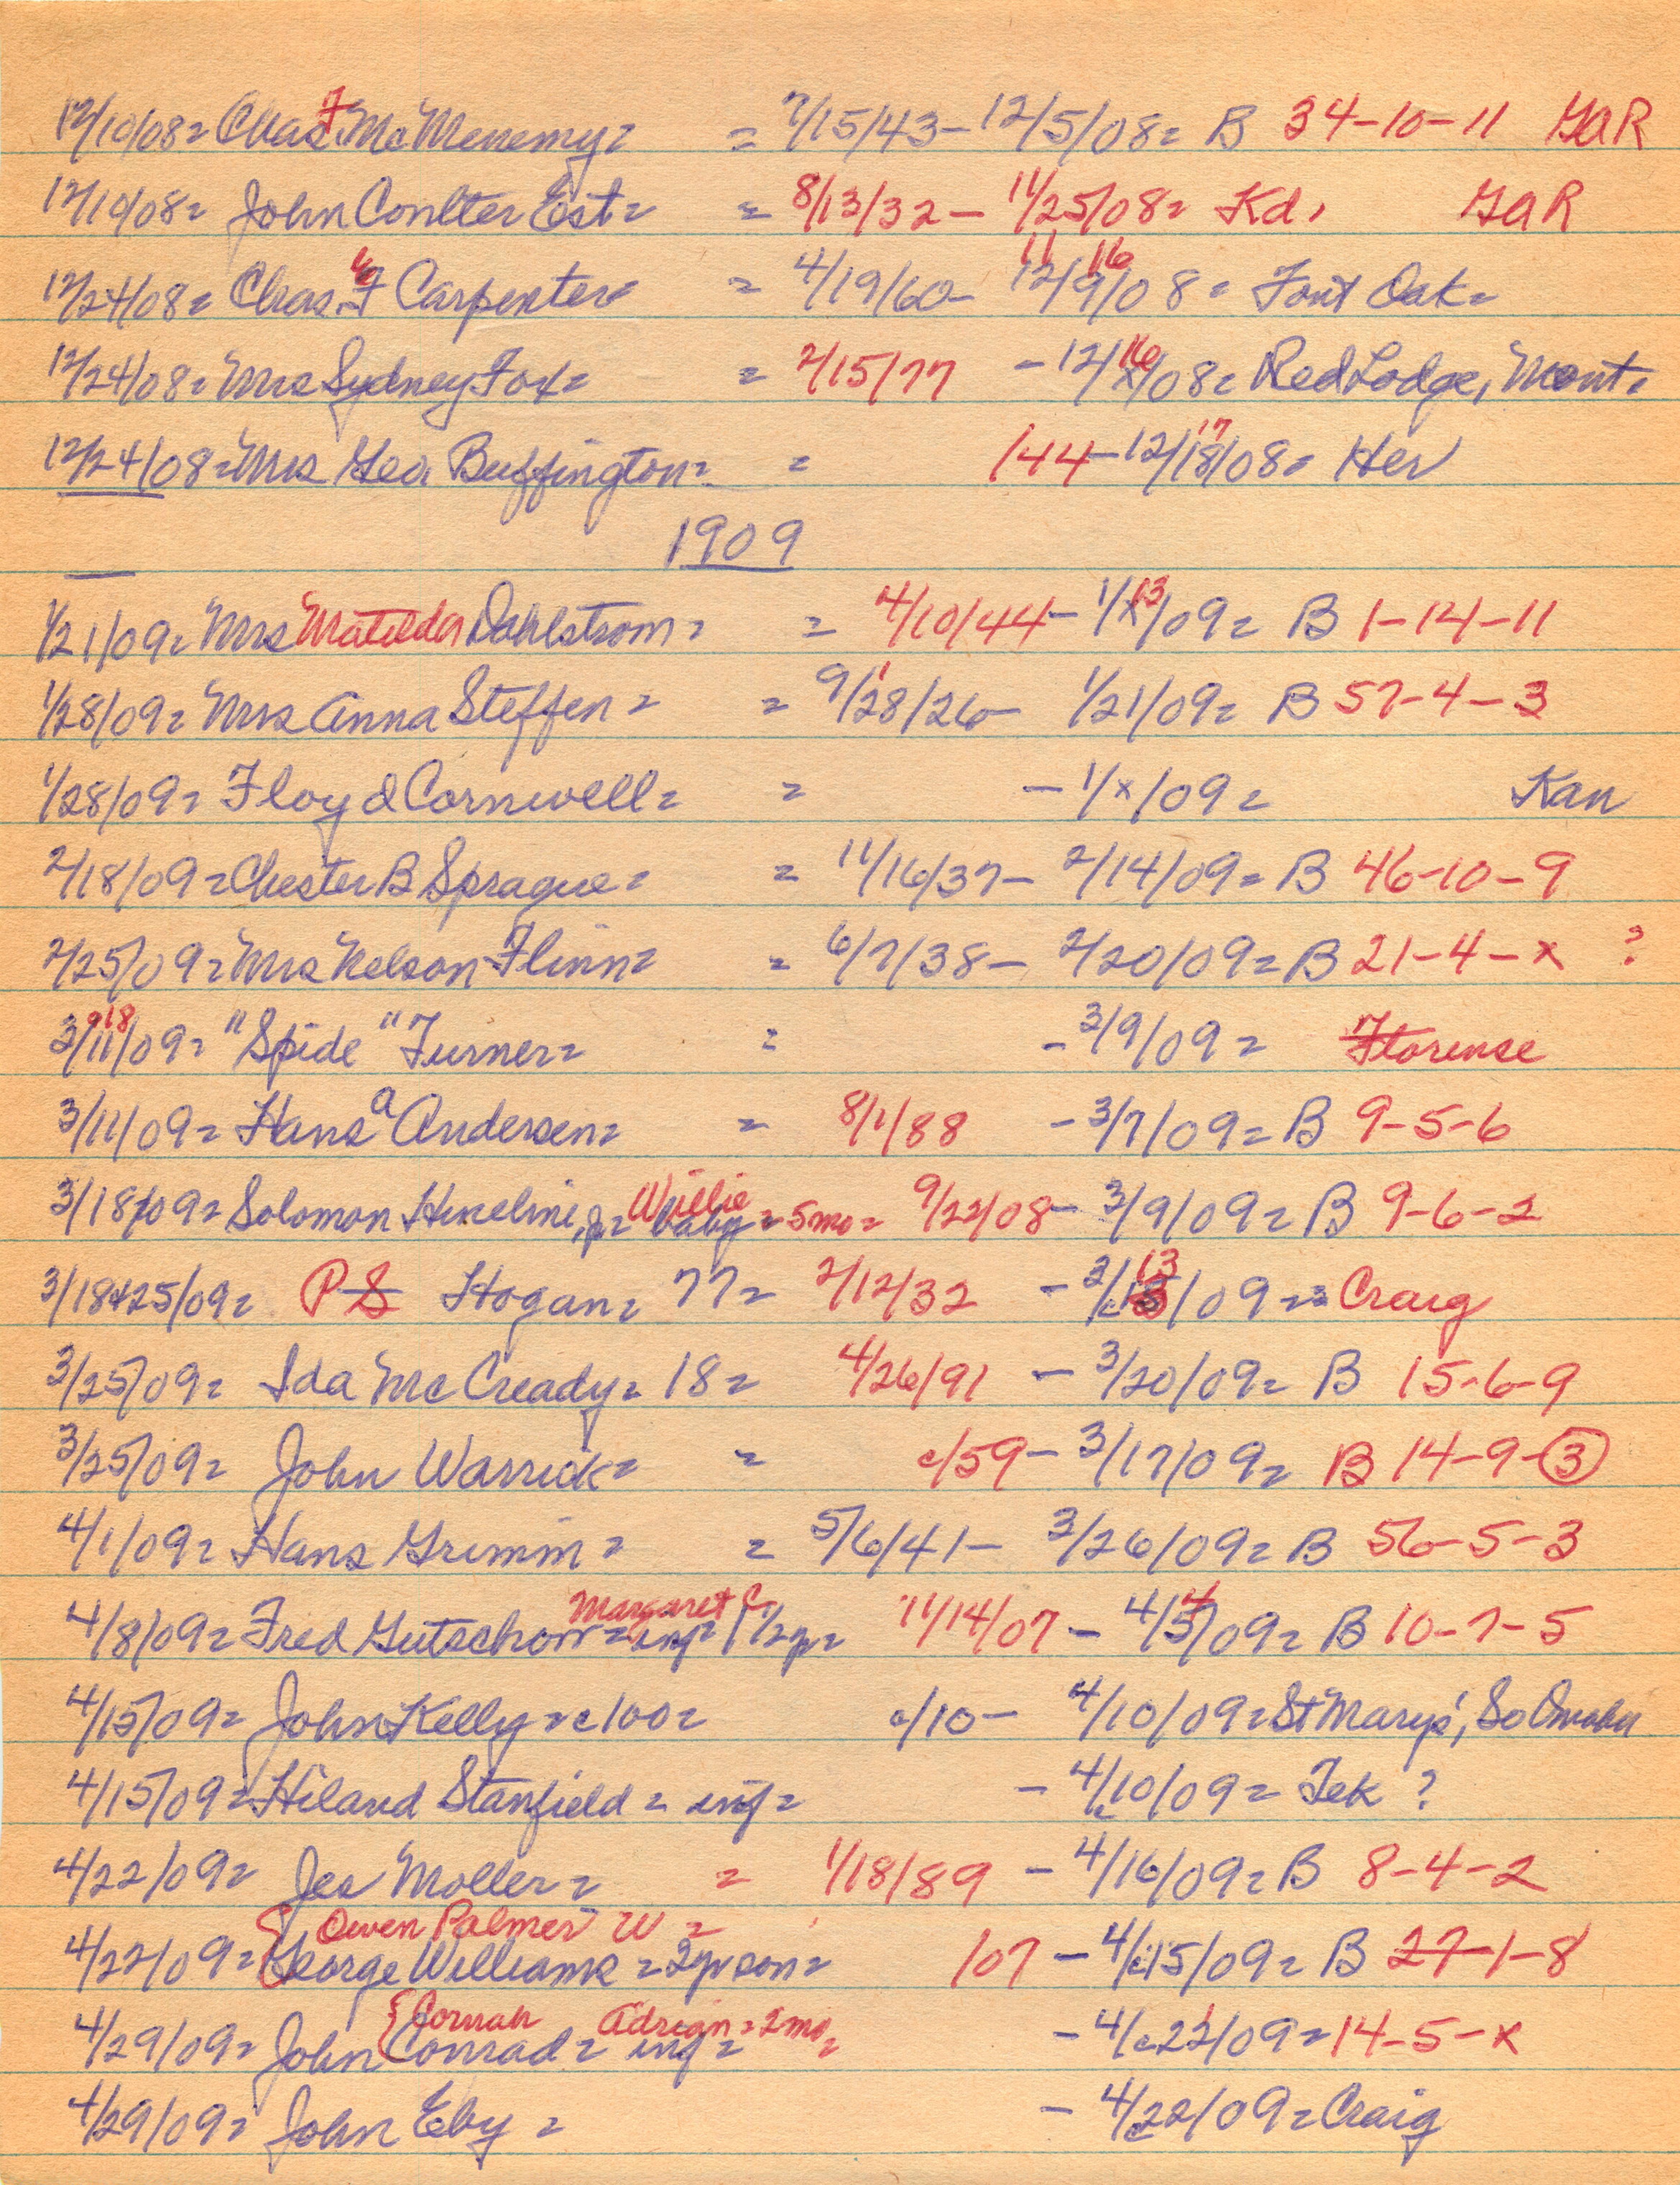 12/10/08 = Chas F. McMenemy = = 7/15/43 - 12/5/08 = B 34-10-11 GAR
12/10/08 = John Coulter Est = = 8/13/32 - 11/25/08 = Kd, GAR
12/24/08 = Chas. F Carpenter = = 4/19/60 - 12/9/08 = Font Oak =
11 16
12/24/08 = Mrs Sydney Fox = = 2/15/77 - 12/x/08 = Red Lodge, Mont =
16
12/24/08 = Mrs Geo Buffington = = 144 - 12/18/08 = Her
17
1909
1/21/09 = Mrs Matilda Dahlstrom = = 4/10/44 - 1/x/09 = B 1-14-11
13
1/28/09 = Mrs Anna Steffen = = 9/28/26 - 1/21/09 = B 57-4-3
1
1/28/09 = Floyd Cornwell = = - 1/x/09 = Kan
2/18/09 = Chester B Sprague = = 11/16/37 - 2/14/09 = B 46-10-9
2/25/09 = Mrs Nelson Flinn = = 6/7/38 - 2/20/09 = B 21-4-x ?
9 18
3/11/09 = "Spide" Turner = = - 3/9/09 = Florense
3/11/09 = Hans A Andersen = = 8/1/88 - 3/7/09 = B 9-5-6
Willie
3/18/09 = Solomon Hineline, Jr = baby = 5 mo = 9/22/08 - 3/9/09 = B 9-6-2
3/18+25/09 = P S Hogan = 77 = 2/12/32 - 3/c13/09 = Craig
13
3/25/09 = Ida McCready = 18 = 4/26/91 - 3/20/09 = B 15-6-9
3/25/09 = John Warrick = = c/59 - 3/17/09 = B 14-9-3
4/1/09 = Hans Grimm = = 5/6/41 - 3/26/09 = B 56-5-3
Margaret C
4/8/09 = Fred Gutschow = inf = 1 1/2 yr = 11/14/07 - 4/5/09 = B 10-7-5
4
4/15/09 = John Kelly = c100 = c/10 - 4/10/09 = St Marys', So Omaha
4/15/09 = Hiland Stanfield = inf = - 4/c10/09 = Tek ?
4/22/09 = Jes Moller = = 1/18/89 - 4/16/09 = B 8-4-2
{ Owen Palmer W =
4/22/09 = George Williams = 2 yr son = 107 - 4/c15/09 = B 27-1-8
{ Cornah Adrian = 2 mo =
4/29/09 = John Conrad = inf = - 4/c22/09 = 14-5-x
4/29/09 = John Eby = - 4/c22/09 = Craig